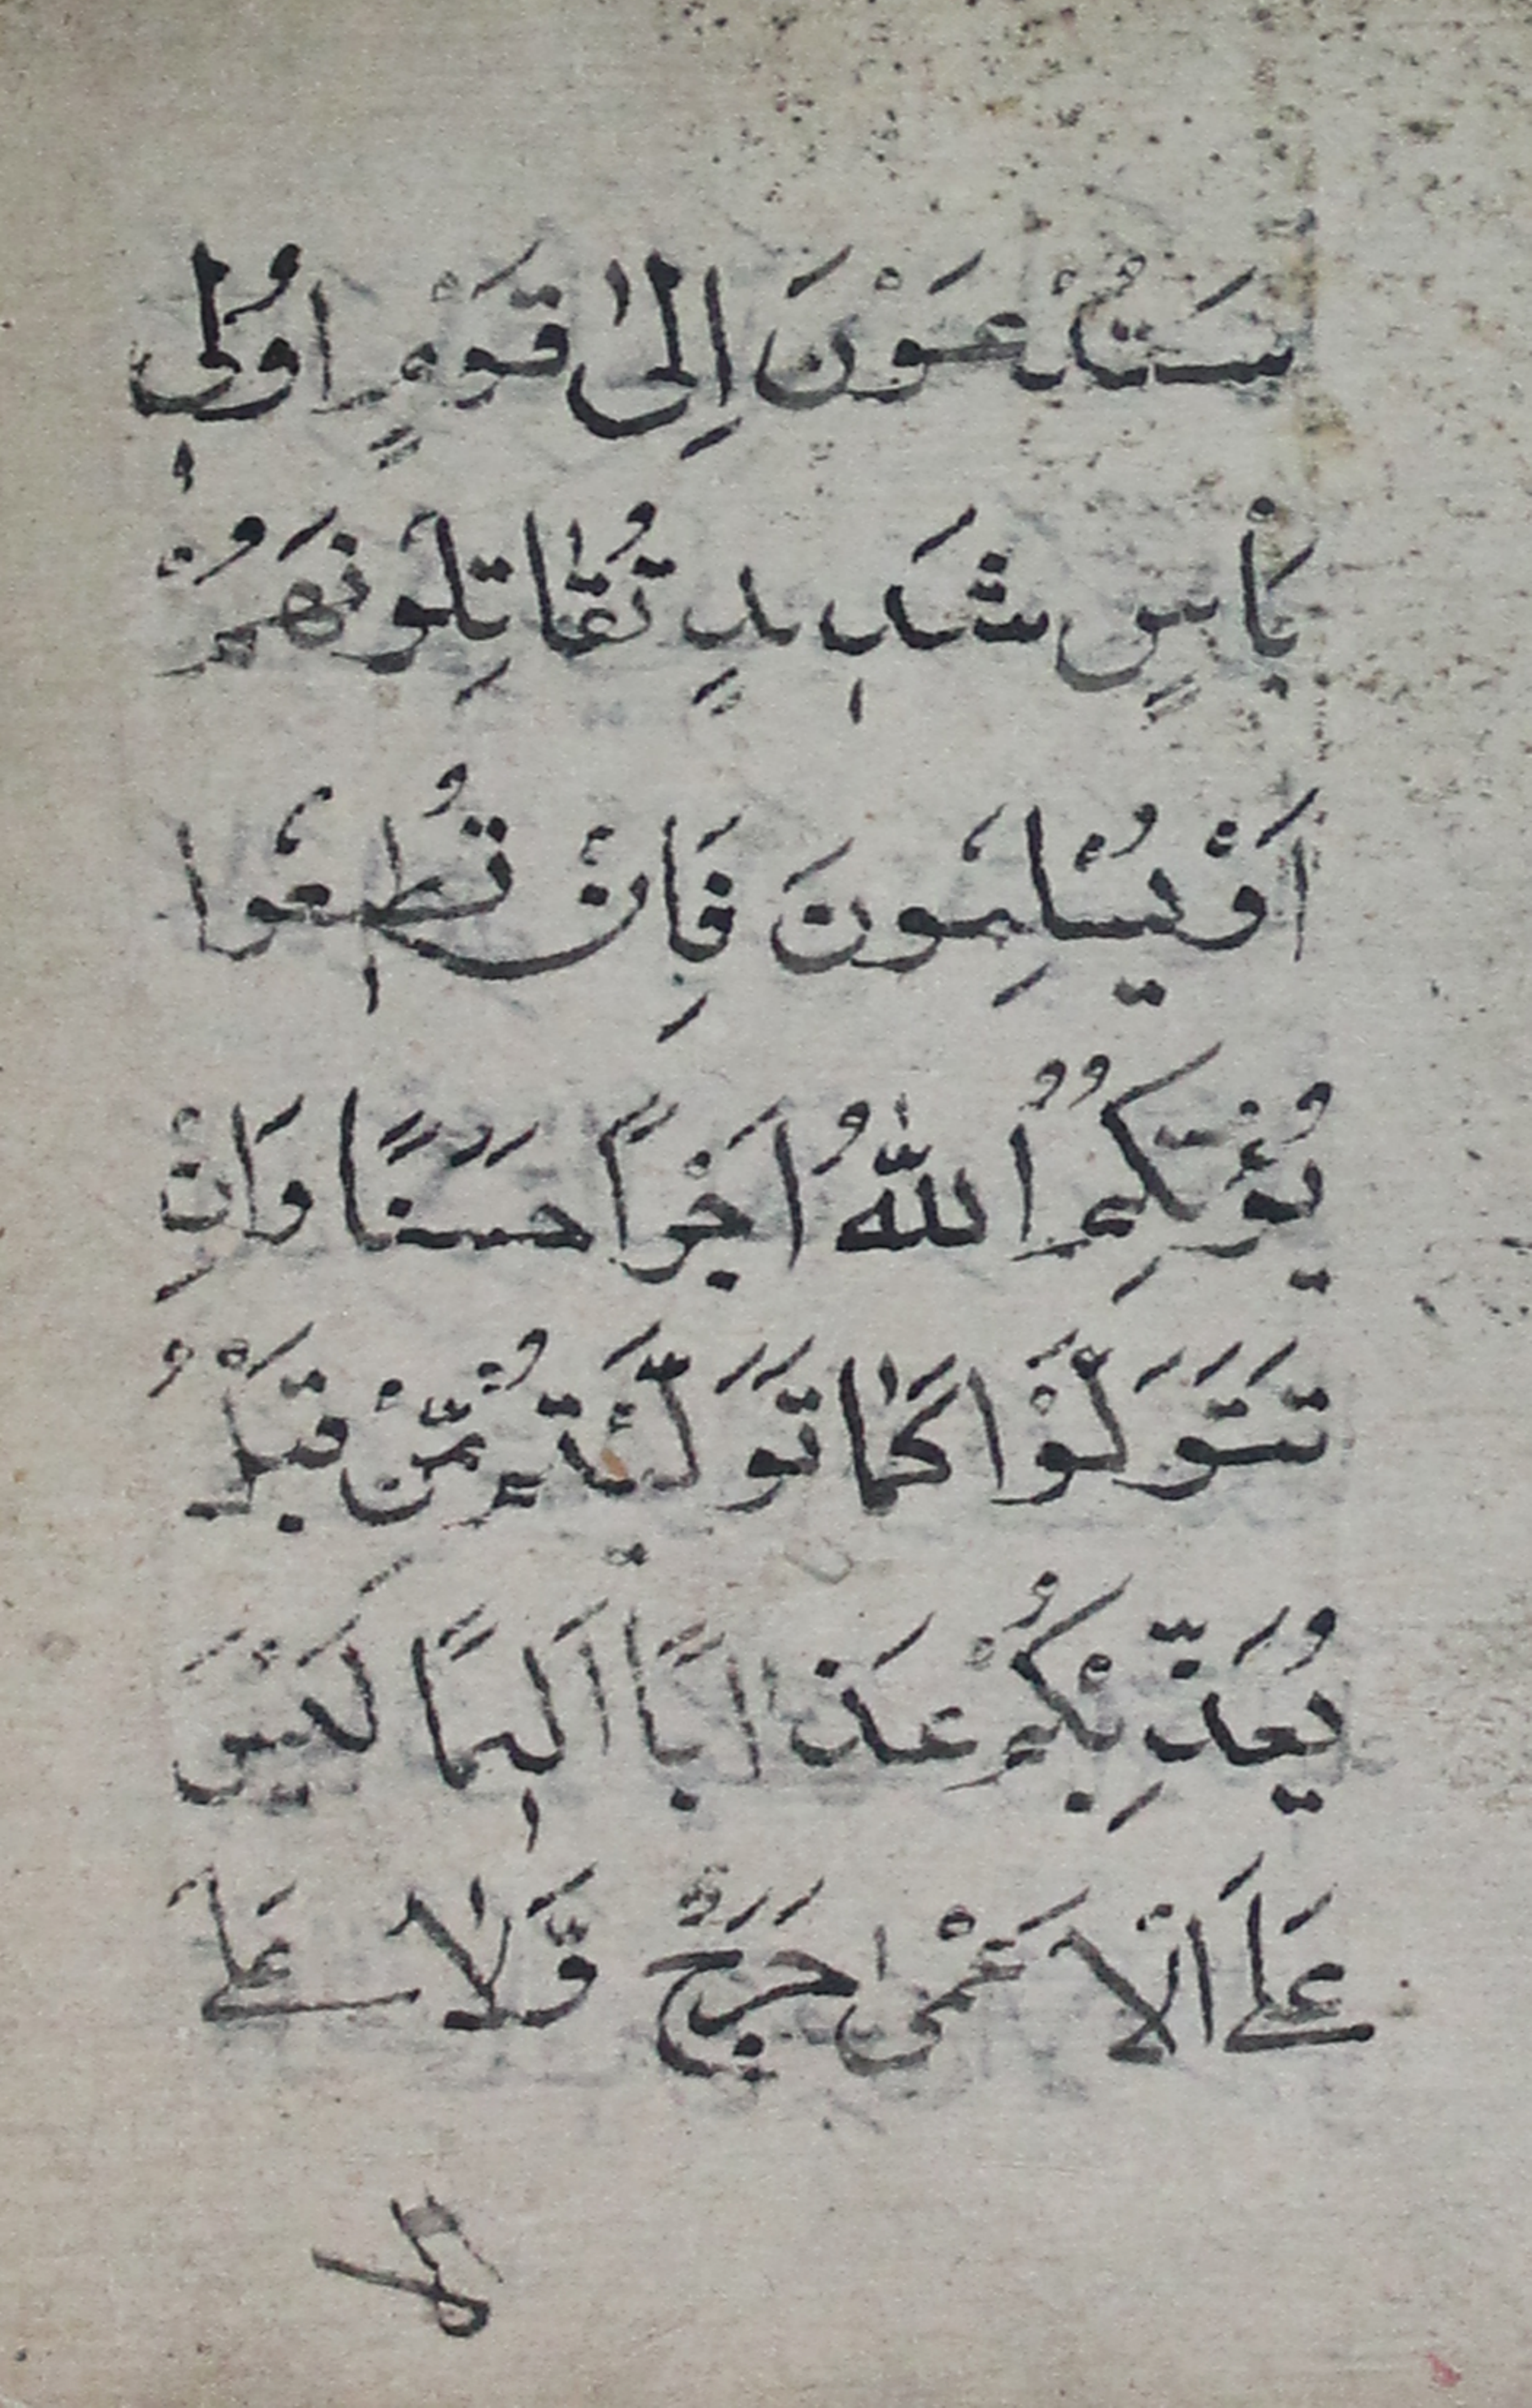 سَتُدْعَوْنَ اِلىٰ قَوْمٍ اُولٖى
بَأْسٍ شَدٖيدٍ تُقٰاتِلُونَهُمْ
اَوْ يُسْلِمُونَ فَاِنْ تُطٖيعُوا
يُؤْتِكُمُ اللّٰهُ اَجْراً حَسَنًا وَاِنْ
تَتَوَلَّوْا كَمٰا تَوَلَّيْتُمْ مِّنْ قَبْلُ
يُعَذِّبْكُمْ عَذَابًا اَلٖيمًا لَيْسَ
عَلَى الْاَعْمىٰ حَرَجٌ وَّلٰا عَلَى
الا